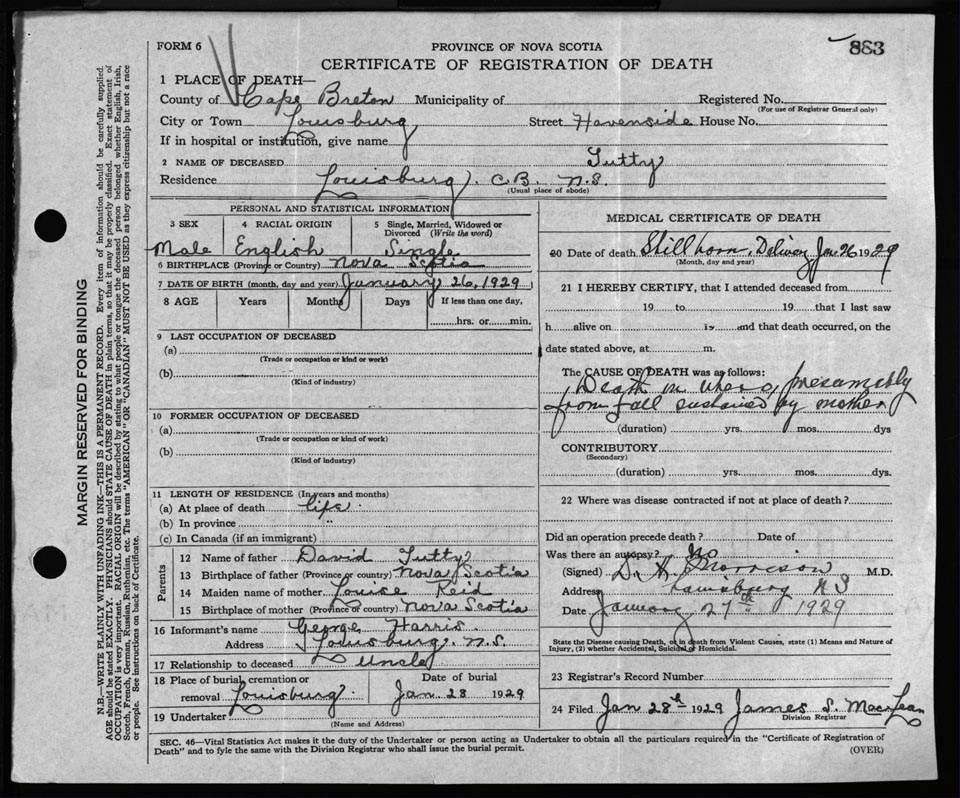 FORM 6
PROVINCE OF NOVA SCOTIA
883
CERTIFICATE OF REGISTRATION OF DEATH
1 PLACE OF DEATH—
County of Cape Breton Municipality of Registered No.
(For use of Registrar General only)
City or Town Louisburg Street Havenside House No.
If in hospital or institution, give name
2 NAME OF DECEASED Tutty
Residence Louisburg. C.B. N.S.
(Usual place of abode)
PERSONAL AND STATISTICAL INFORMATION
3 SEX 4 RACIAL ORIGIN 5 Single, Married, Widowed or Divorced (Write the word)
Male English Single
6 BIRTHPLACE (Province or Country) Nova Scotia
7 DATE OF BIRTH (month, day and year) January 26, 1929
8 AGE Years Months Days If less than one day,
hrs. or min.
9 LAST OCCUPATION OF DECEASED
(a)
(Trade or occupation or kind of work)
(b)
(Kind of industry)
10 FORMER OCCUPATION OF DECEASED
(a)
(Trade or occupation or kind of work)
(b)
(Kind of industry)
11 LENGTH OF RESIDENCE (In years and months)
(a) At place of death life
(b) In province "
(c) In Canada (if an immigrant)
Parents
12 Name of father David Tutty
13 Birthplace of father (Province or country) Nova Scotia
14 Maiden name of mother Louise Reid
15 Birthplace of mother (Province or country) Nova Scotia
16 Informant's name George Harris
Address Louisburg. N.S.
17 Relationship to deceased Uncle
18 Place of burial, cremation or removal Louisburg. Date of burial Jan 28 1929
19 Undertaker
(Name and Address)
MEDICAL CERTIFICATE OF DEATH
20 Date of death Stillborn, Delivery Jan 26 1929
(Month, day and year)
21 I HEREBY CERTIFY, that I attended deceased from
19 to 19 that I last saw
h alive on 19 and that death occurred, on the
date stated above, at m.
The CAUSE OF DEATH was as follows:
Death in utero, presumably
from fall sustained by mother
(duration) yrs. mos. dys
CONTRIBUTORY
(Secondary)
(duration) yrs. mos. dys.
22 Where was disease contracted if not at place of death?
Did an operation precede death? Date of
Was there an autopsy? No
(Signed) D. A. Morrison M.D.
Address Louisburg N S
Date January 27th 1929
State the Disease causing Death, or in death from Violent Causes, state (1) Means and Nature of
Injury, (2) whether Accidental, Suicidal or Homicidal.
23 Registrar's Record Number
24 Filed Jan 28th 1929 James S. MacLean
Division Registrar
SEC. 46—Vital Statistics Act makes it the duty of the Undertaker or person acting as Undertaker to obtain all the particulars required in the "Certificate of Registration of
Death" and to fyle the same with the Division Registrar who shall issue the burial permit.
(OVER)
MARGIN RESERVED FOR BINDING
N.B.—WRITE PLAINLY WITH UNFADING INK—THIS IS A PERMANENT RECORD. Every item of information should be carefully supplied.
AGE should be stated EXACTLY. PHYSICIANS should STATE CAUSE OF DEATH in plain terms, so that it may be properly classified. Exact statement of
OCCUPATION is very important. RACIAL ORIGIN will be described by stating to what people or tongue the deceased person belonged whether English, Irish,
Scotch, French, German, Russian, Ruthenian, etc. The terms "AMERICAN" OR "CANADIAN" MUST NOT BE USED as they express citizenship but not a race
or people. See instructions on back of Certificate.